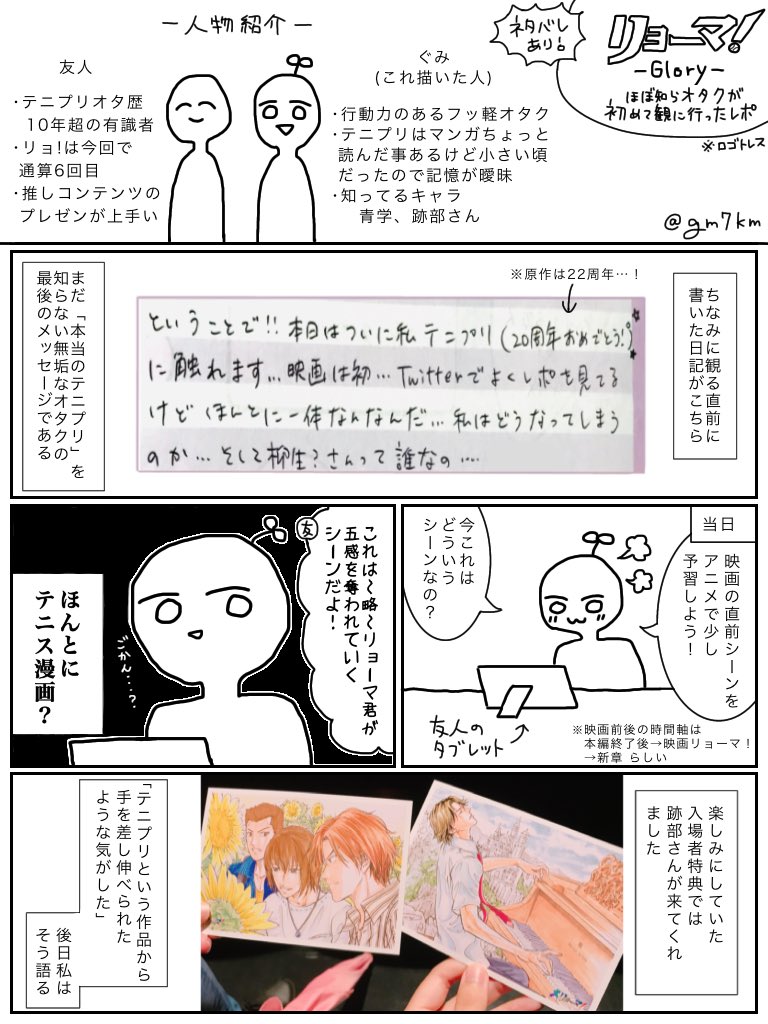 ネタバレ
あり!
リョーマ!
－Glory－
ほぼ知らオタクが
初めて観に行ったレポ
※ロゴトレス
@gm7km
－人物紹介－
友人
・テニプリオタ歴
10年超の有識者
・リョ!は今回で
通算6回目
・推しコンテンツの
プレゼンが上手い
ぐみ
(これ描いた人)
・行動力のあるフッ軽オタク
・テニプリはマンガちょっと
読んだ事あるけど小さい頃
だったので記憶が曖昧
・知ってるキャラ
青学、跡部さん
ちなみに観る直前に
書いた日記がこちら
※原作は22周年…!
ということで!!本日はついに私テニプリ(20周年おめでとう!)
に触れます…映画は初…Twitterでよくレポも見てる
けどほんとに一体なんなんだ…私はどうなってしまう
のか…そして柳生?さんって誰なの…
まだ「本当のテニプリ」を
知らない無垢なオタクの
最後のメッセージである
当日
映画の直前シーンを
アニメで少し
予習しよう!
今これは
どういう
シーンなの?
友人の
タブレット
※映画前後の時間軸は
本編終了後→映画リョーマ!
→新章 らしい
友
これは～略～リョーマ君が
五感を奪われていく
シーンだよ!
ごかん…?
ほんとに
テニス漫画?
楽しみにしていた
入場者特典では
跡部さんが来てくれ
ました
リョーマ!
「テニプリという作品から
手を差し伸べられた
ような気がした」
後日私は
そう語る